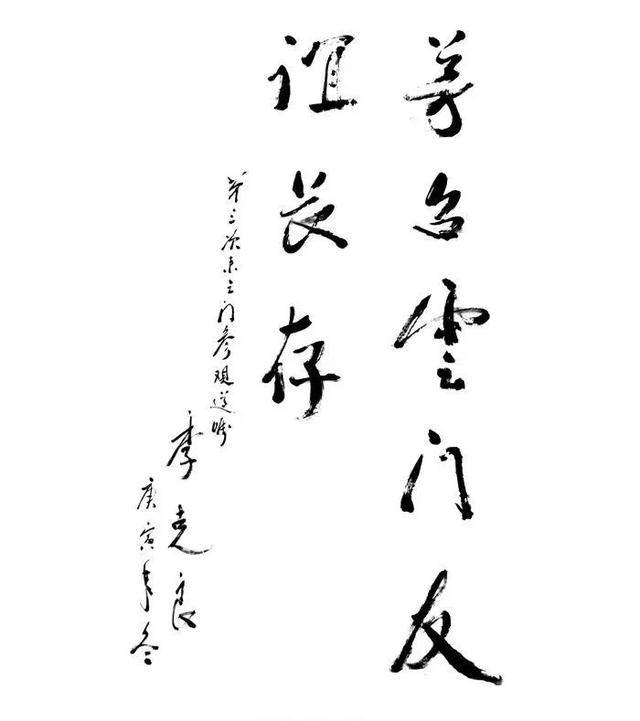 芳名雲门友
谊长存
第三次来云门参观遵嘱
李克良
庚寅年冬